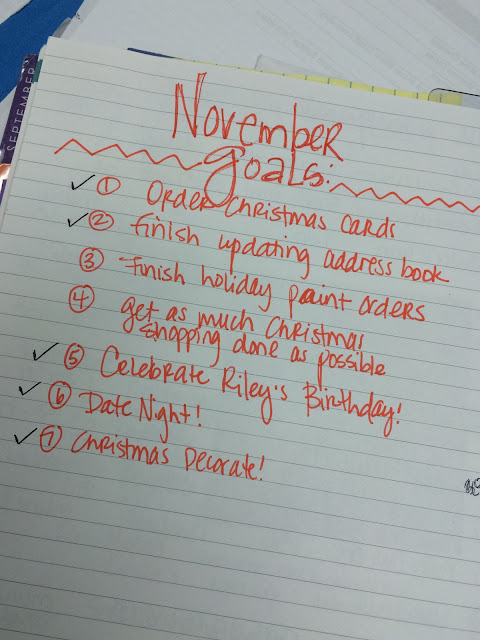 SEPTEMBER
November
goals:
✓ ① Order Christmas Cards
✓ ② finish updating address book
③ Finish holiday paint orders
④ get as much Christmas
shopping done as possible
✓ ⑤ Celebrate Riley's Birthday!
✓ ⑥ Date Night!
✓ ⑦ Christmas Decorate!